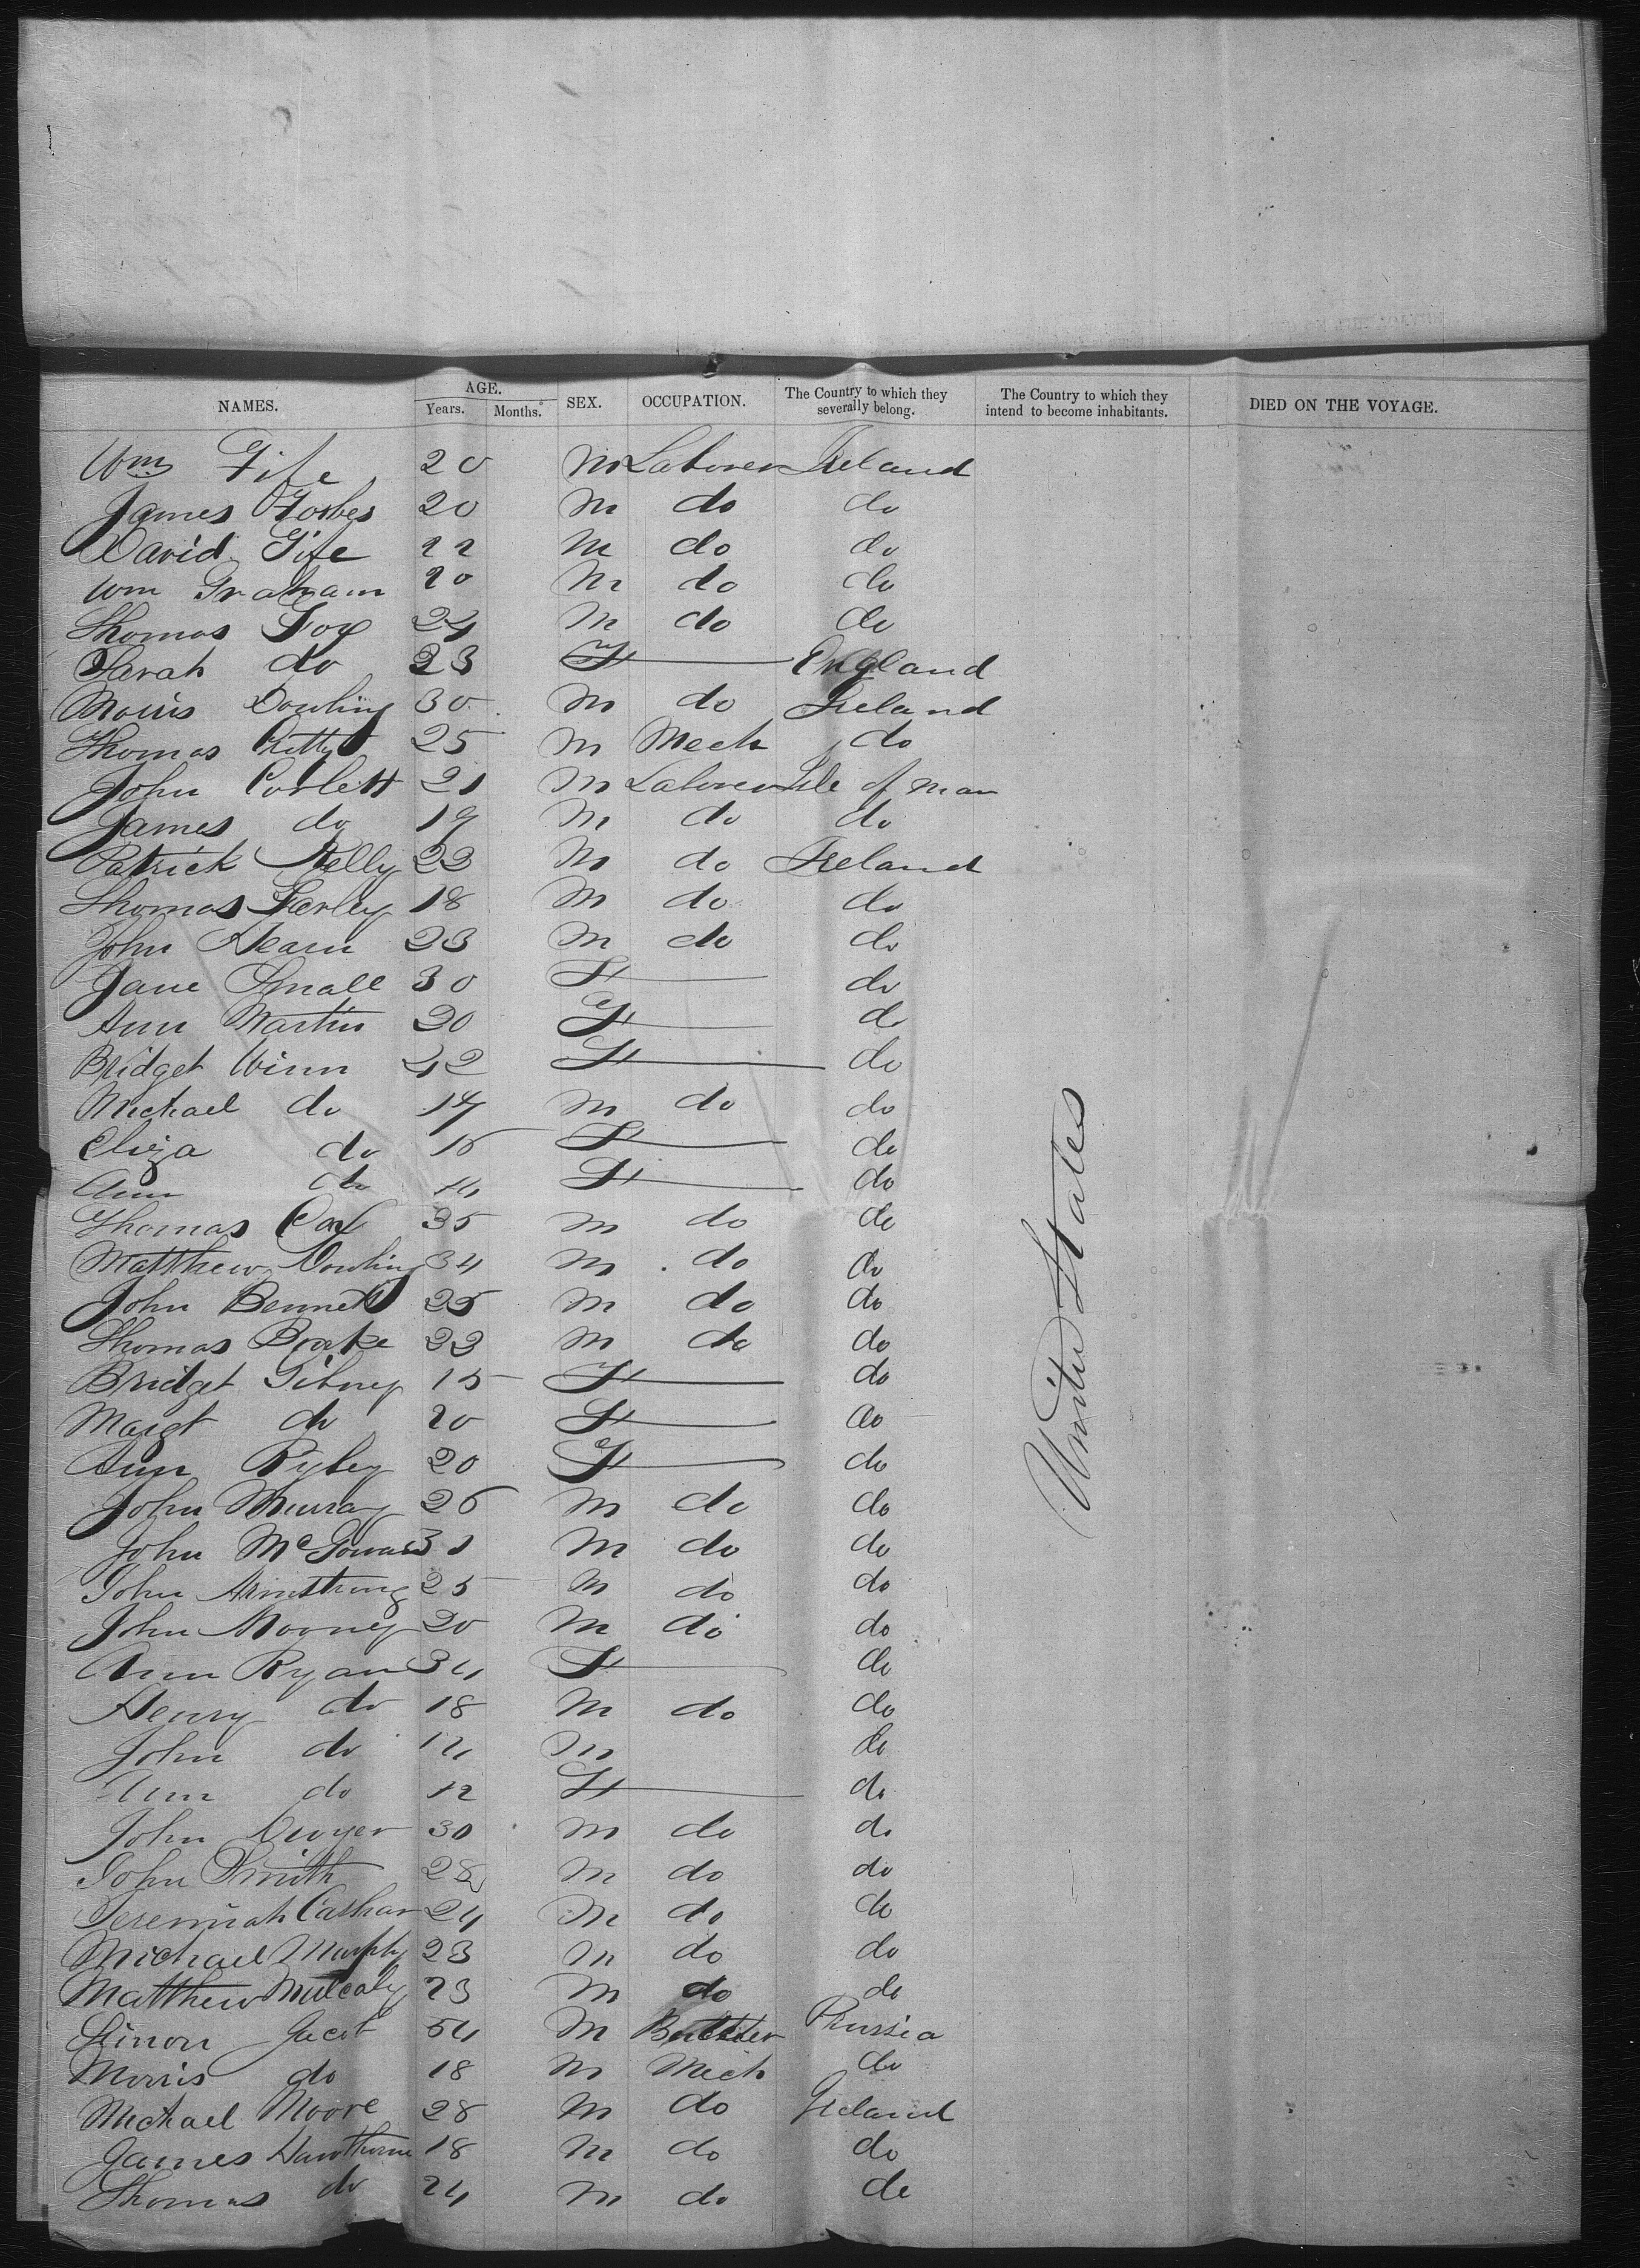 NAMES. AGE. Years. Months. SEX. OCCUPATION. The Country to which they severally belong. The Country to which they intend to become inhabitants. DIED ON THE VOYAGE.
Wm Fife 20 M Laborer Ireland
James Forbes 20 M do do
David Fife 22 M do do
Wm Graham 20 M do do
Thomas Fox 24 M do do
Sarah do 23 F England
Morris Dowling 30 M do Ireland
Thomas 25 M Mech do
John Corlett 21 M Laborer Isle of man
James do 19 M do do
Patrick Kelly 23 M do Ireland
Thomas Farley 18 M do do
John Hearn 23 M do do
Jane Small 30 F do
Ann Martin 30 F do
Bridget Winn 42 F do
Michael do 17 M do do
Eliza do 15 F do
Ann do 14 F do
Thomas Cox 35 M do do
Matthew Dowling 34 M do do
John Bennett 25 M do do
Thomas 33 M do do
Bridget Gibney 15 F do
Margt do 20 F do
Ann 20 F do
John Murray 26 M do do
John McGowan 31 M do do
John Armstrong 25 M do do
John Mooney 20 M do do
Ann Ryan 34 F do
Henry do 18 M do do
John do 14 M do
Ann do 12 F do
John Dwyer 30 M do do
John Smith 28 M do do
Jeremiah Cashan 24 M do do
Michael Murphy 23 M do do
Matthew Mulcahy 23 M do do
Simon Jacob 54 M Butcher Prussia
Morris do 18 M Mech do
Michael Moore 28 M do Ireland
James Hawthorne 18 M do do
Thomas do 24 M do do
United States